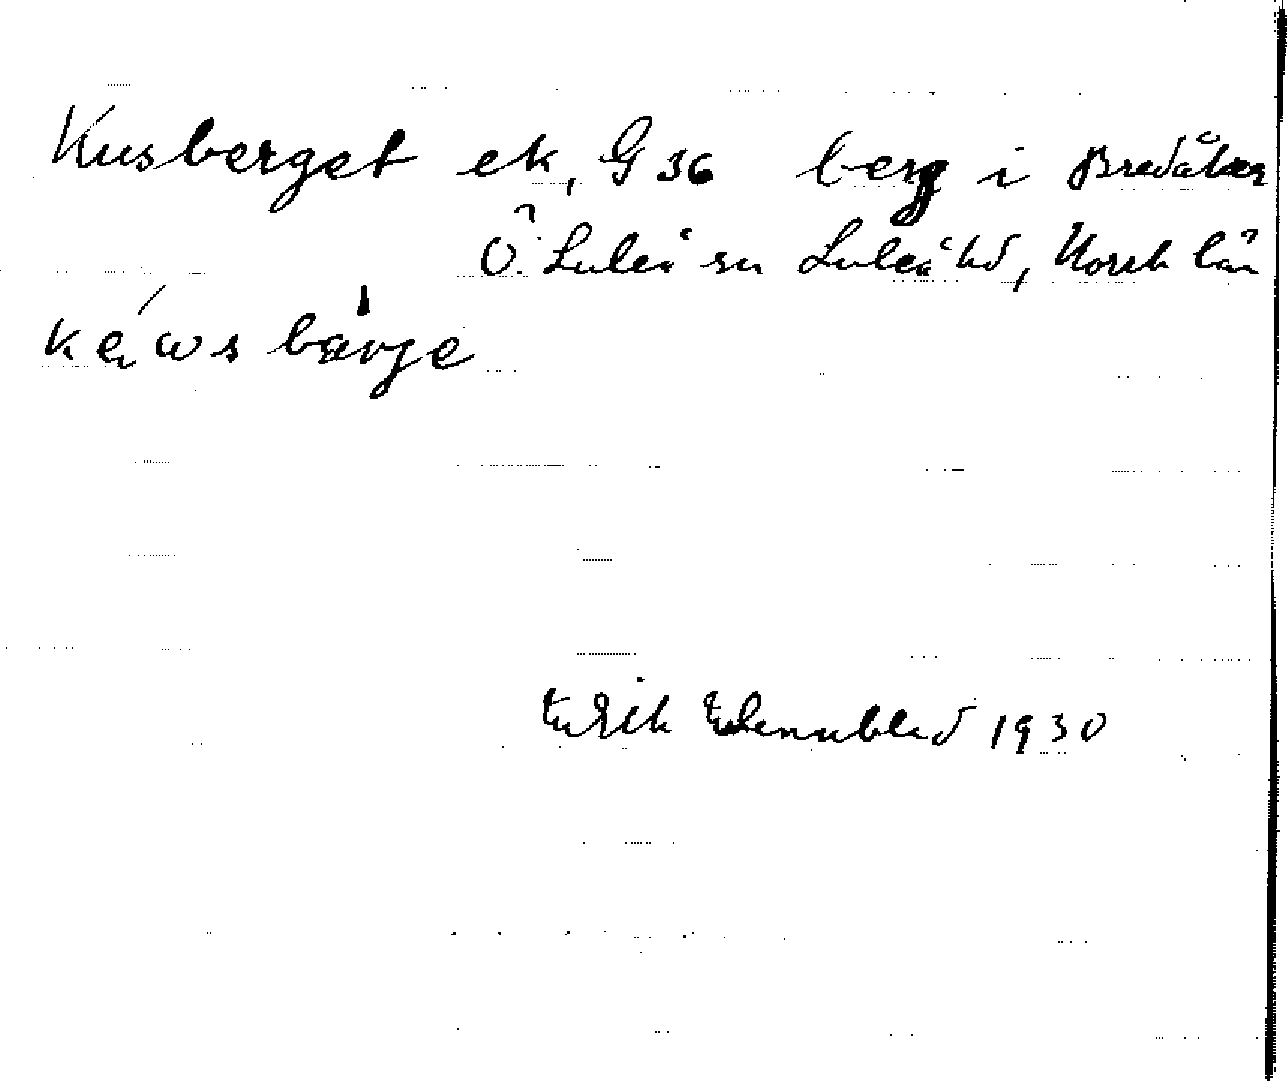 Kusberget ek, G 36 berg i Bredåker
Ö. Luleå sn Luleå hd, Norrb län
bärje
Erik 1930